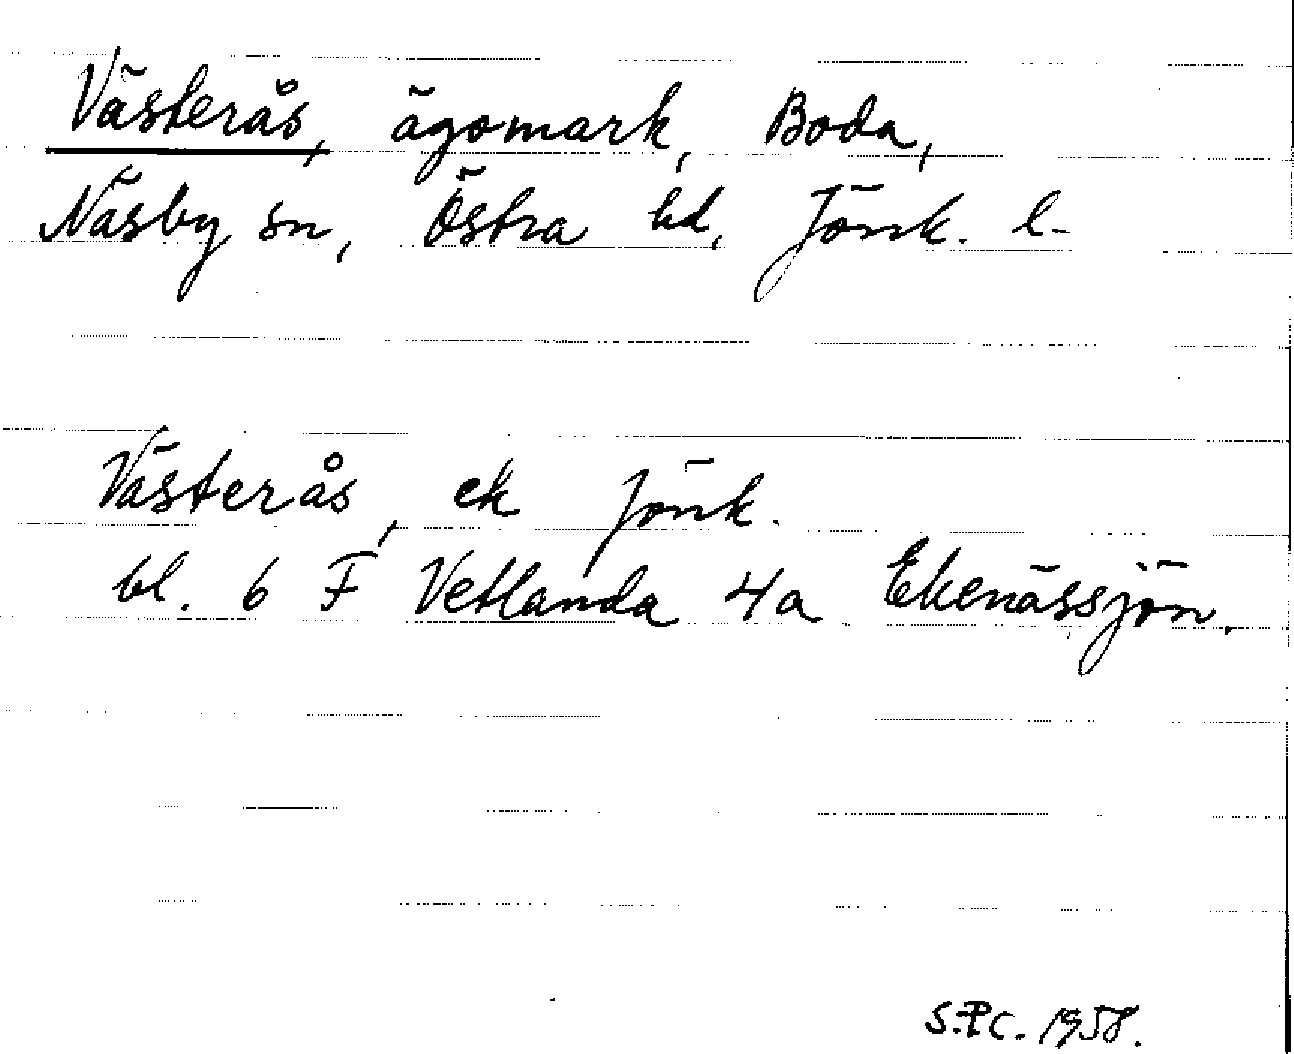 Västerås, ägomark, Boda,
Näsby sn, Östra hd, Jönk. l.
Västerås, ek Jönk.
bl. 6 F Vetlanda 4a Ekenässjön.
1958.